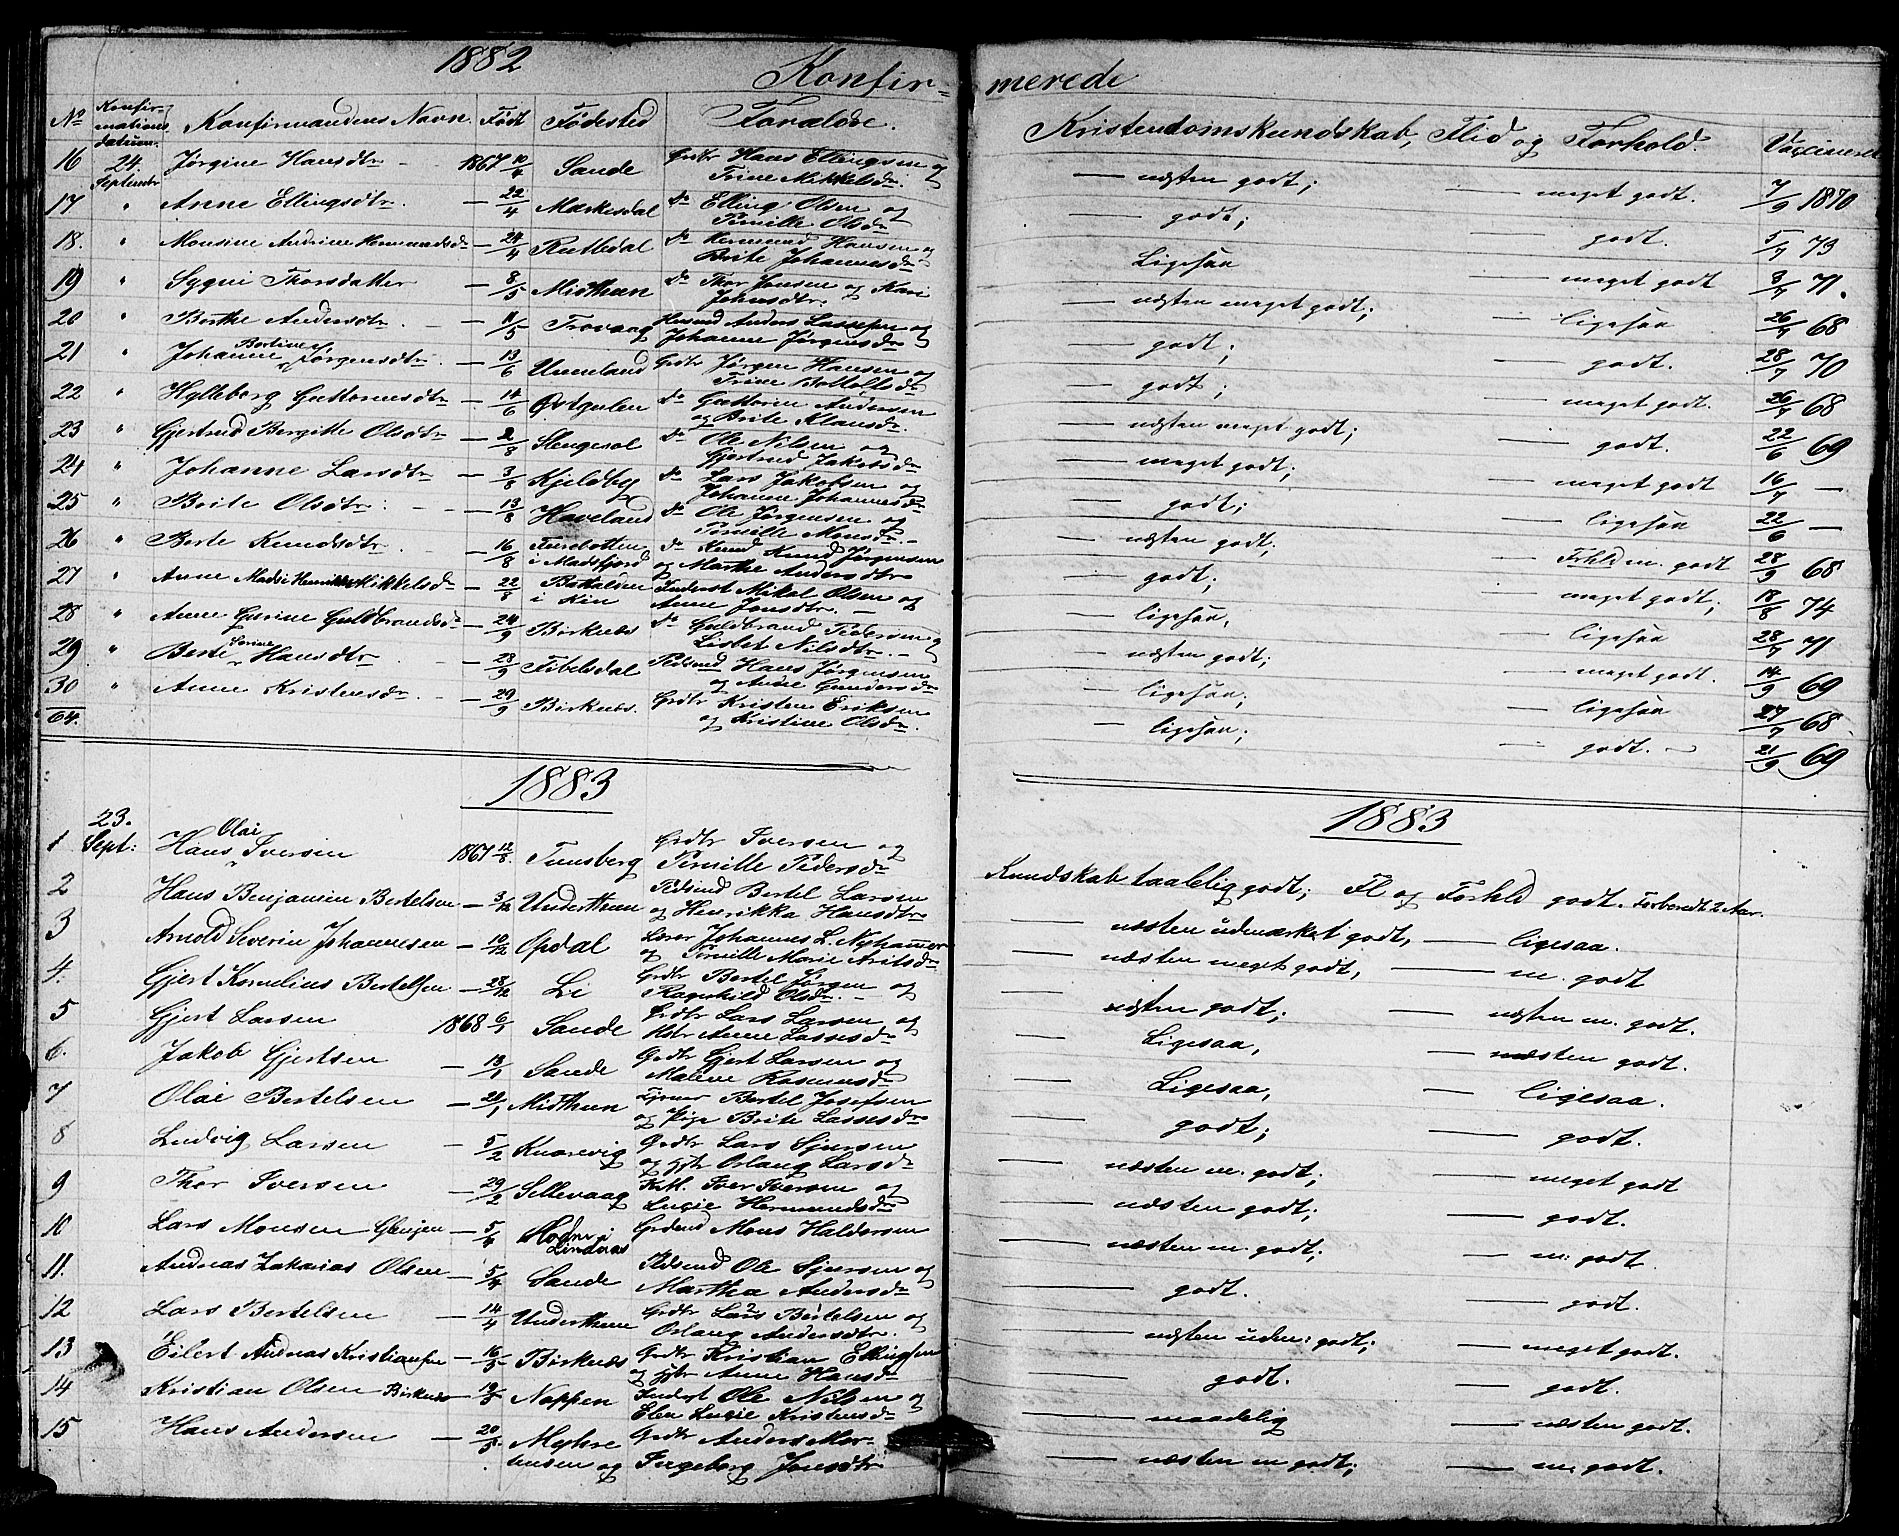 1882
Konfir-
merede
No
Konfir-
mations
datum.
Konfirmandens Navn.
Født
Fødested
Forældre.
Kristendomskundskab, Flid og Forhold.
Vaccineret
16 24. Septembr Jørgine Hansdtr - 1867 10/4 Sande Grdbr Hans Ellingsen og
Trine Mikkelsdr.
— næsten godt; — meget godt. 7/9 1870
17 " Anne Ellingsdtr. — 22/4 Markesdal do Elling Olsen og
Pernille Olsdr
— godt; — godt. 5/7 73
18. " Monsine Andrine Hermundsdr — 24/4 Rutledal do Hermund Hansen og
Brite Johannesdr
Ligesaa — meget godt 3/7 71.
19 " Sygni Thorsdatter — 8/5 Midthun do Thor Jonsen og Kari
Johnsdtr.
— næsten meget godt; — ligesaa 26/7 68
20 " Berthe Andersdtr. — 11/5 Trovaag Husmd Anders Lassesen og
Johanne Jørgensdr
— godt; — godt. 28/7 70
21 " Johanne Bertine Jørgensdtr. — 13/6 Unneland Grdbr Jørgen Hansen og
Trine Bottolfsdr
— godt; — meget godt. 26/7 68
22 " Hylleborg Guttormsdtr. — 14/6 Østgulen do Guttorm Andersen
og Brite Klausdr.
— næsten meget godt; — godt. 22/6 69
23 " Gjertrud Bergitte Olsdtr — 2/8 Slengesol do Ole Nilsen og
Gjertrud Jakobsdr
— meget godt; — meget godt 16/7 —
24 " Johanne Larsdtr — 3/8 Kjeldby do Lars Jakobsen og
Johanne Johannesdr
— godt; — ligesaa 22/6 —
25 " Brite Olsdtr: — 13/8 Haveland do Ole Jørgensen og
Pernille Monsdr.
— næsten godt; — Forhld m. godt 28/9 68
26 " Berte Knudsdtr. — 16/8 Furebotten
i Madsfjord do Knud Knud Jørgensen
og Marthe Andersdtr
— godt; — meget godt; 18/8 74
27 " Anne Madsi Henrikke Mikkelsdr — 22/8 Battalden
i Kin Inderst Mikal Olsen og
Anne Jonsdtr.
— ligesaa, — ligesaa 28/7 71
28 " Anne Gurine Guldbrandsdr — 24/9 Birknes do Guldbrand Pedersen og
Lisbet Nilsdtr. -
— næsten godt; — meget godt. 14/9 69
29 " Berte Serine Hansdtr — 28/9 Fibelsdal Pladsmd Hans Jørgensen
og Anne Gundersdr
— ligesaa; — ligesaa 27/7 68.
30 " Anne Kristensdr. — 29/9 Birknes. Grdbr Kristen Eriksen
og Kristine Olsdr.
— ligesaa; — godt. 21/9 69
64.
1883
1883
1 23. Sept: Hans Olai Iversen 1867 12/8. Tunsberg Grdbr Iversen og
Pernille Pedersdr
Kundskab taalelig godt; Fl og Forhld godt. Forberedt 2 Aar.
2 Hans Benjamin Bertelsen — 3/12 Underthun Pladsmd Bertel Larsen
og Henrikka Hansdtr
— næsten udmærket godt, — ligesaa.
3 Arnold Severin Johannesen — 10/12 Opdal Lærer Johannes L. Nyhammer
og Pernille Marie Arilsdr
— næsten meget godt, — m. godt
4. Gjert Kornelius Bertelsen — 28/12 Li Grdbr Bertel Jørgen og
Ragnhild Olsdr. -
— næsten godt; — næsten m. godt.
5 Gjert Larsen 1868 6/1 Sande Grdbr Lars Larsen og
Hstr Anne Lassesdr
— Ligesaa, — næsten godt.
6. Jakob Gjertsen — 13/1 Sande Grdbr Gjert Larsen og
Malene Rasmusdr
— Ligesaa, — ligesaa.
7 Olai Bertelsen — 28/1 Midthun Tjener Bertel Josefsen
og Pige Brite Lassesdr
— godt; — godt.
8 Ludvig Larsen — 5/2 Knarvig Grdbr Lars Sjursen
og Hstr Orlaug Larsdr
— næsten m. godt; — meget godt
9 Thor Iversen — 29/2 Sellevaag K.M. Iver Iversen og
Lucie Hermundsdr
— næsten godt; — godt.
10 Lars Monsen Glenjen — 5/4 Hodne i
Lindaas Grdmd Mons Haldorsen
— næsten m. godt; — m. godt.
11. Andreas Zakarias Olsen — 5/4 Sande Pldsmd Ole Sjursen og
Martha Andersdr
— godt. — godt.
12 Lars Bertelsen — 14/4 Underthun Grdbr Lars Bertelsen og
Orlaug Andersdtr.
— næsten udm: godt; — meget godt.
13 Eilert Andreas Kristiansen — 16/5 Birknæs Grdbr Kristian Ellingsen
og Hstr Anne Hansdr
— godt. — godt.
14 Kristian Olsen Birknes — 19/5 Noppen Inderst Ole Nilsen og
Elen Lucie Kristensdr
— maadelig — næsten godt.
15 Hans Andersen — 20/5 Myhre Grdbr Anders Mor-
tensen og Ingeborg Jonsdtr
— næsten m godt; — m. godt.